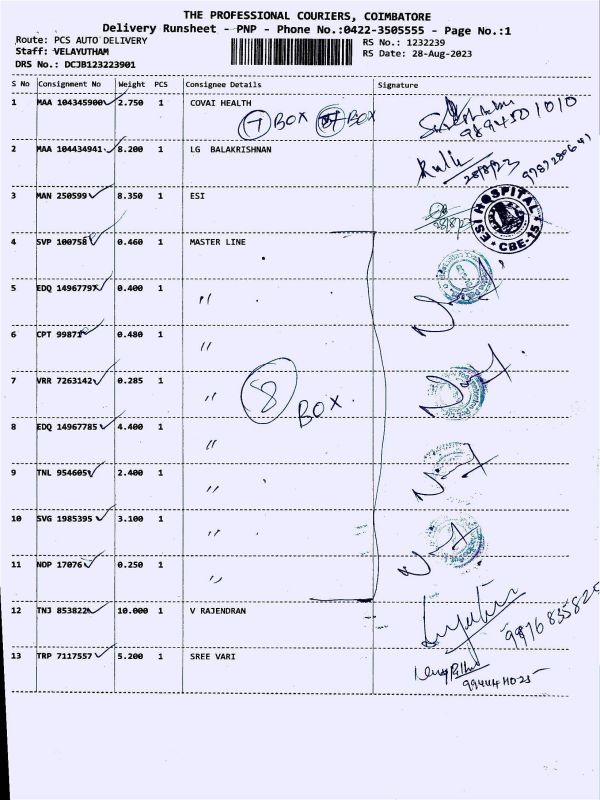 THE PROFESSIONAL COURIERS, COIMBATORE
Delivery Runsheet - PNP - Phone No.:0422-3505555 - Page No.:1
Route: PCS AUTO DELIVERY
Staff: VELAYUTHAM
DRS No.: DCJB123223901
RS No.: 1232239
RS Date: 28-Aug-2023
S No Consignment No Weight PCS Consignee Details Signature
1 MAA 104345900 2.750 1 COVAI HEALTH
7 BOX BOX
2 MAA 104434941 8.200 1 LG BALAKRISHNAN
28/8/23
3 MAN 250599 8.350 1 ESI
ESI HOSPITAL
CBE-15
4 SVP 100758 0.460 1 MASTER LINE
5 EDQ 14967797 0.400 1 "
6 CPT 99871 0.480 1 "
7 VRR 7263142 0.285 1 "
8 BOX.
8 EDQ 14967785 4.400 1 "
9 TNL 954605 2.400 1 "
10 SVG 1985395 3.100 1 "
11 NDP 17076 0.250 1 "
12 TNJ 853822 10.000 1 V RAJENDRAN
13 TRP 7117557 5.200 1 SREE VARI